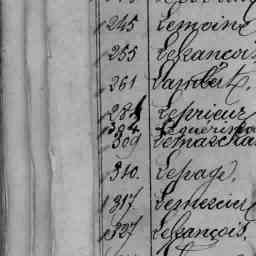 245 Lemoine
255 Lefrancois
261 Lambert.
281 Leprieur
384
309 Lemarcha
310. Lepage.
317. Lemercier
327 Lefrançois.